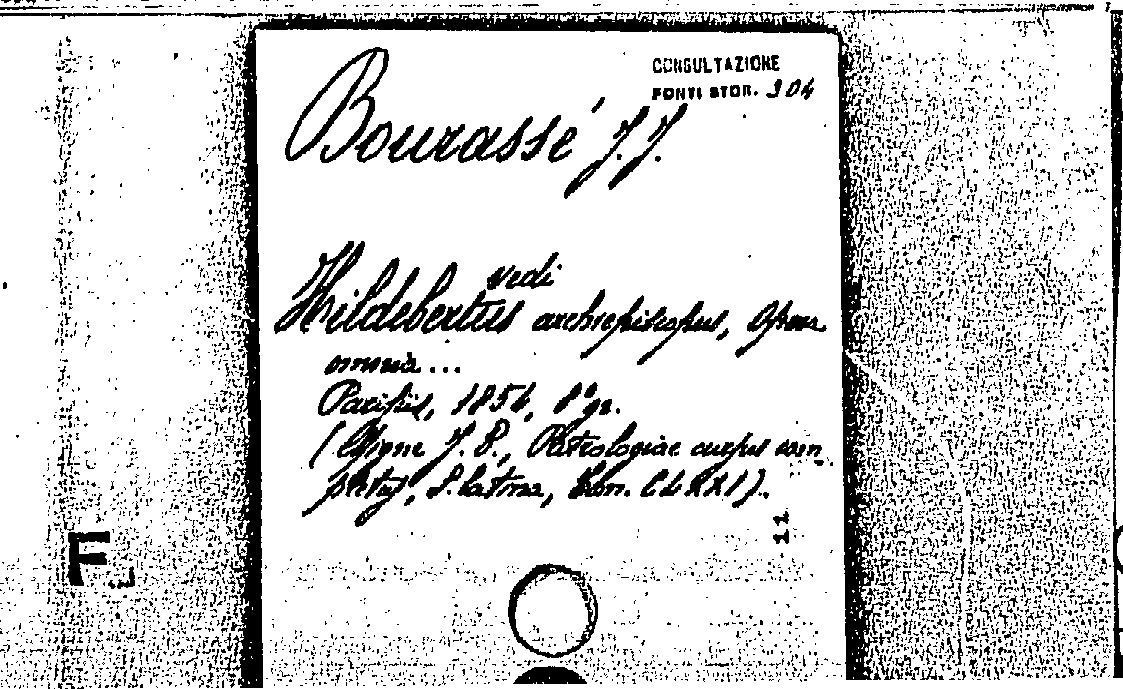 CONSULTAZIONE
FONTI STOR. 304
Bourassé J. J.
vedi
Hildebertus archiepiscopus, Opera
omnia...
Parisiis, 1854, 8° gr.
(Migne J. P., Patrologiae cursus com_
pletus, S. latina, Tom. CLXXI).
11
F